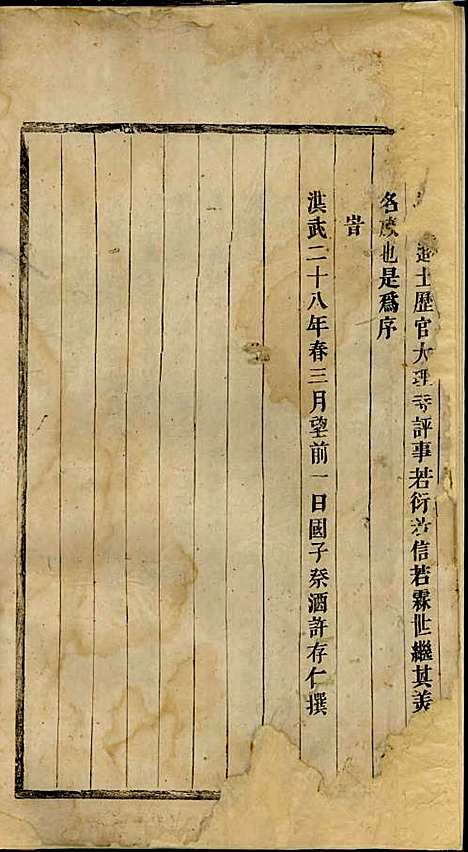 進士歷官大理寺評事若衍若信若霖世繼其美
名茂也是爲序
旹
洪武二十八年春三月望前一日國子祭酒許存仁撰